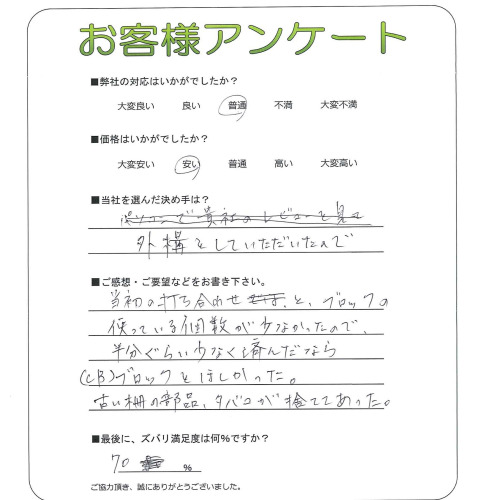 お客様アンケート
■弊社の対応はいかがでしたか？
大変良い 良い 普通 不満 大変不満
■価格はいかがでしたか？
大変安い 安い 普通 高い 大変高い
■当社を選んだ決め手は？
パソコンで貴社のレビューを見て
外構をしていただいたので
■ご感想・ご要望などをお書き下さい。
当初の打ち合わせ と、ブロックの
使っている個数が少なかったので、
半分ぐらい少なく済んだなら
(CB)ブロックとほしかった。
古い柵の部品、タバコが捨ててあった。
■最後に、ズバリ満足度は何%ですか？
70 %
ご協力頂き、誠にありがとうございました。